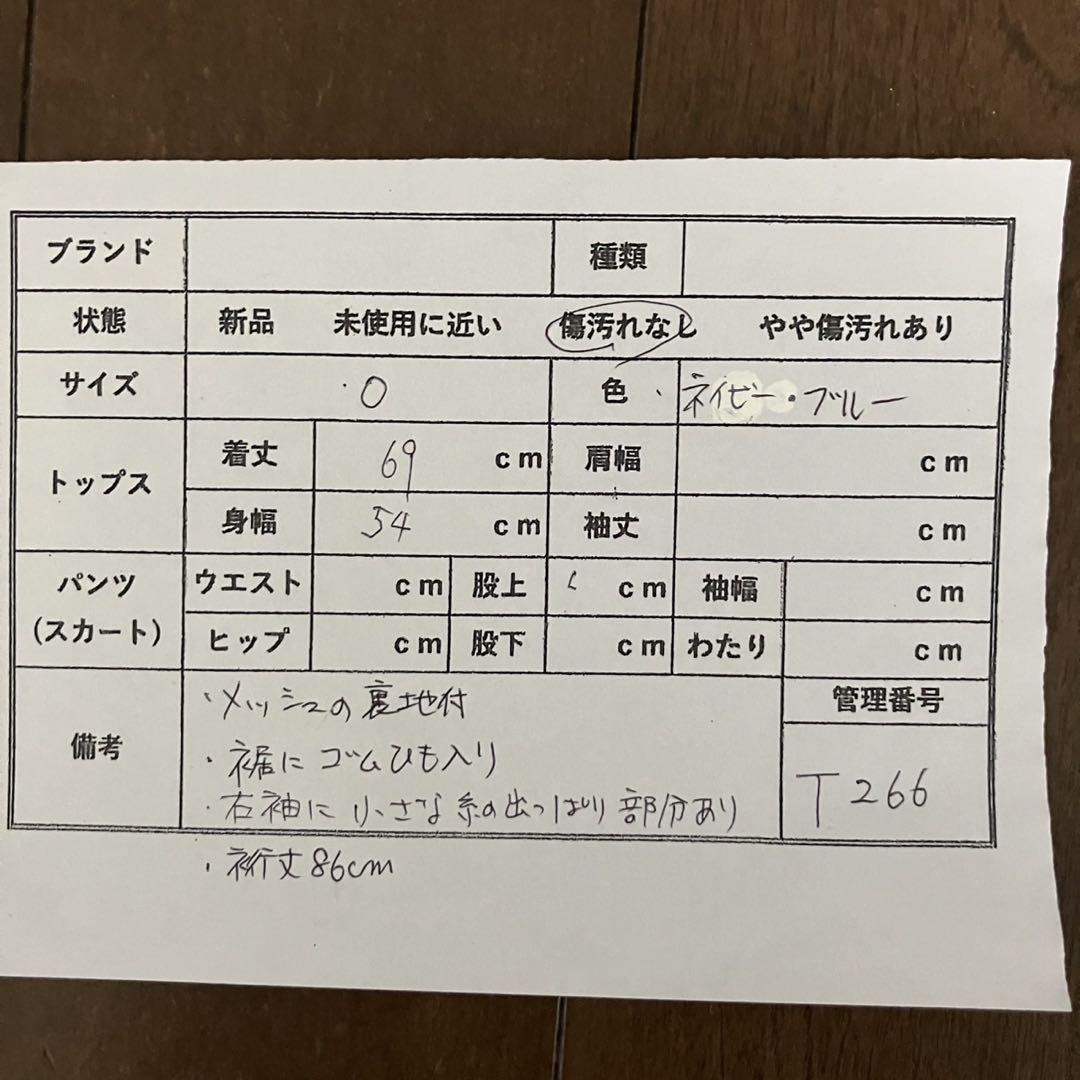 ブランド 種類
状態 新品 未使用に近い 傷汚れなし やや傷汚れあり
サイズ 0 色 ネイビー・ブルー
トップス 着丈 69 cm 肩幅 cm
身幅 54 cm 袖丈 cm
パンツ ウエスト cm 股上 cm 袖幅 cm
(スカート) ヒップ cm 股下 cm わたり cm
備考 管理番号
・メッシュの裏地付
・裾にゴムひも入り
・右袖に小さな糸の出っぱり部分あり
T266
・裄丈86cm